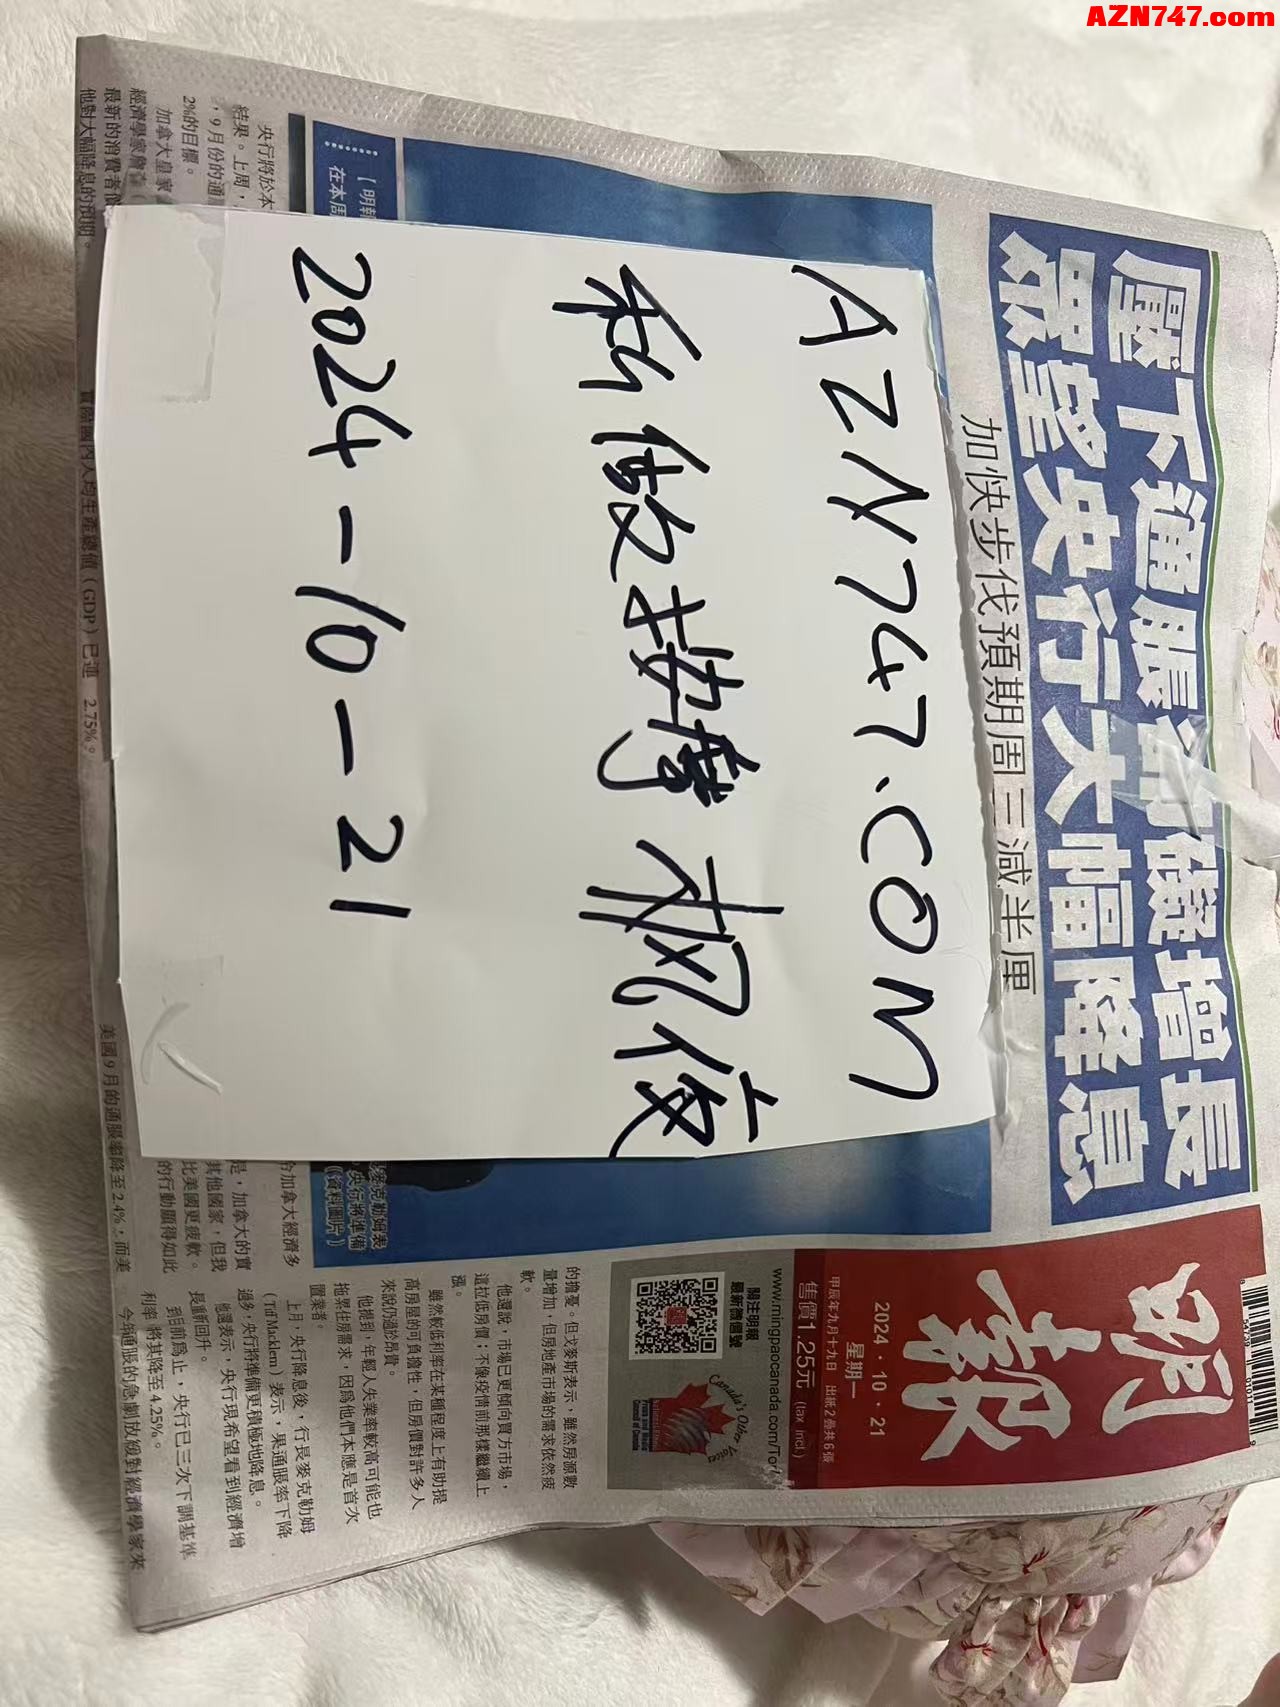 AZN747.com
壓下通脹
礙增長
眾望央行大幅降息
加快步伐預期周三減半厘
明報
2024·10·21
星期一
甲辰年九月十九日 出紙2疊共6張
售價1.25元 (tax incl.)
www.mingpaocanada.com/Tor
關注明報
最新微信號
Canada's Other Voice
AZN747.COM
私做按摩
2024-10-21
【明報
在本周
央行將於本
結果。上周,
,9月份的通
2%的目標。
加拿大皇家
經濟學家詹森
最新的消費者
他對大幅降息的預期。
實際國內人均生產總值(GDP)已連
2.75%。
美國9月的通脹率降至2.4%,而美
麥克勒姆表
央行將準備
(資料圖片)
加拿大經濟多
是,加拿大的實
其他國家,但我
比美國更疲軟。
的行動顯得如此
的擔憂。但戈麥斯表示,雖然房源數
量增加,但房地產市場的需求依然疲
軟。
他還說,市場已更傾向買方市場,
這拉低房價;不像疫情前那樣繼續上
漲。
雖然較低利率在某種程度上有助提
高房屋的可負擔性,但房價對許多人
來說仍過於昂貴。
他提到,年輕人失業率較高可能也
拖累住房需求,因為他們本應是首次
置業者。
上月,央行降息後,行長麥克勒姆
(Tiff Macklem)表示,果通脹率下降
過多,央行將準備更積極地降息。
他還表示,央行現希望看到經濟增
長重新回升。
到目前為止,央行已三次下調基準
利率 將其降至4.25%。
今年通脹的急劇放緩對經濟學家來